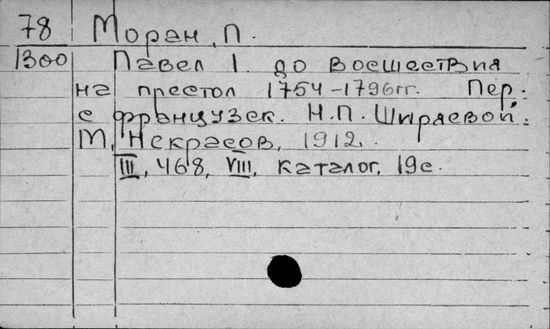 78 Моран, П.
1300 Павел I до восшествия
на престол 1754-1796гг. Пер.
с французск. Н.П. Ширяевой.
М, Некрасов, 1912.
III, 468, VIII, каталог, 19с.